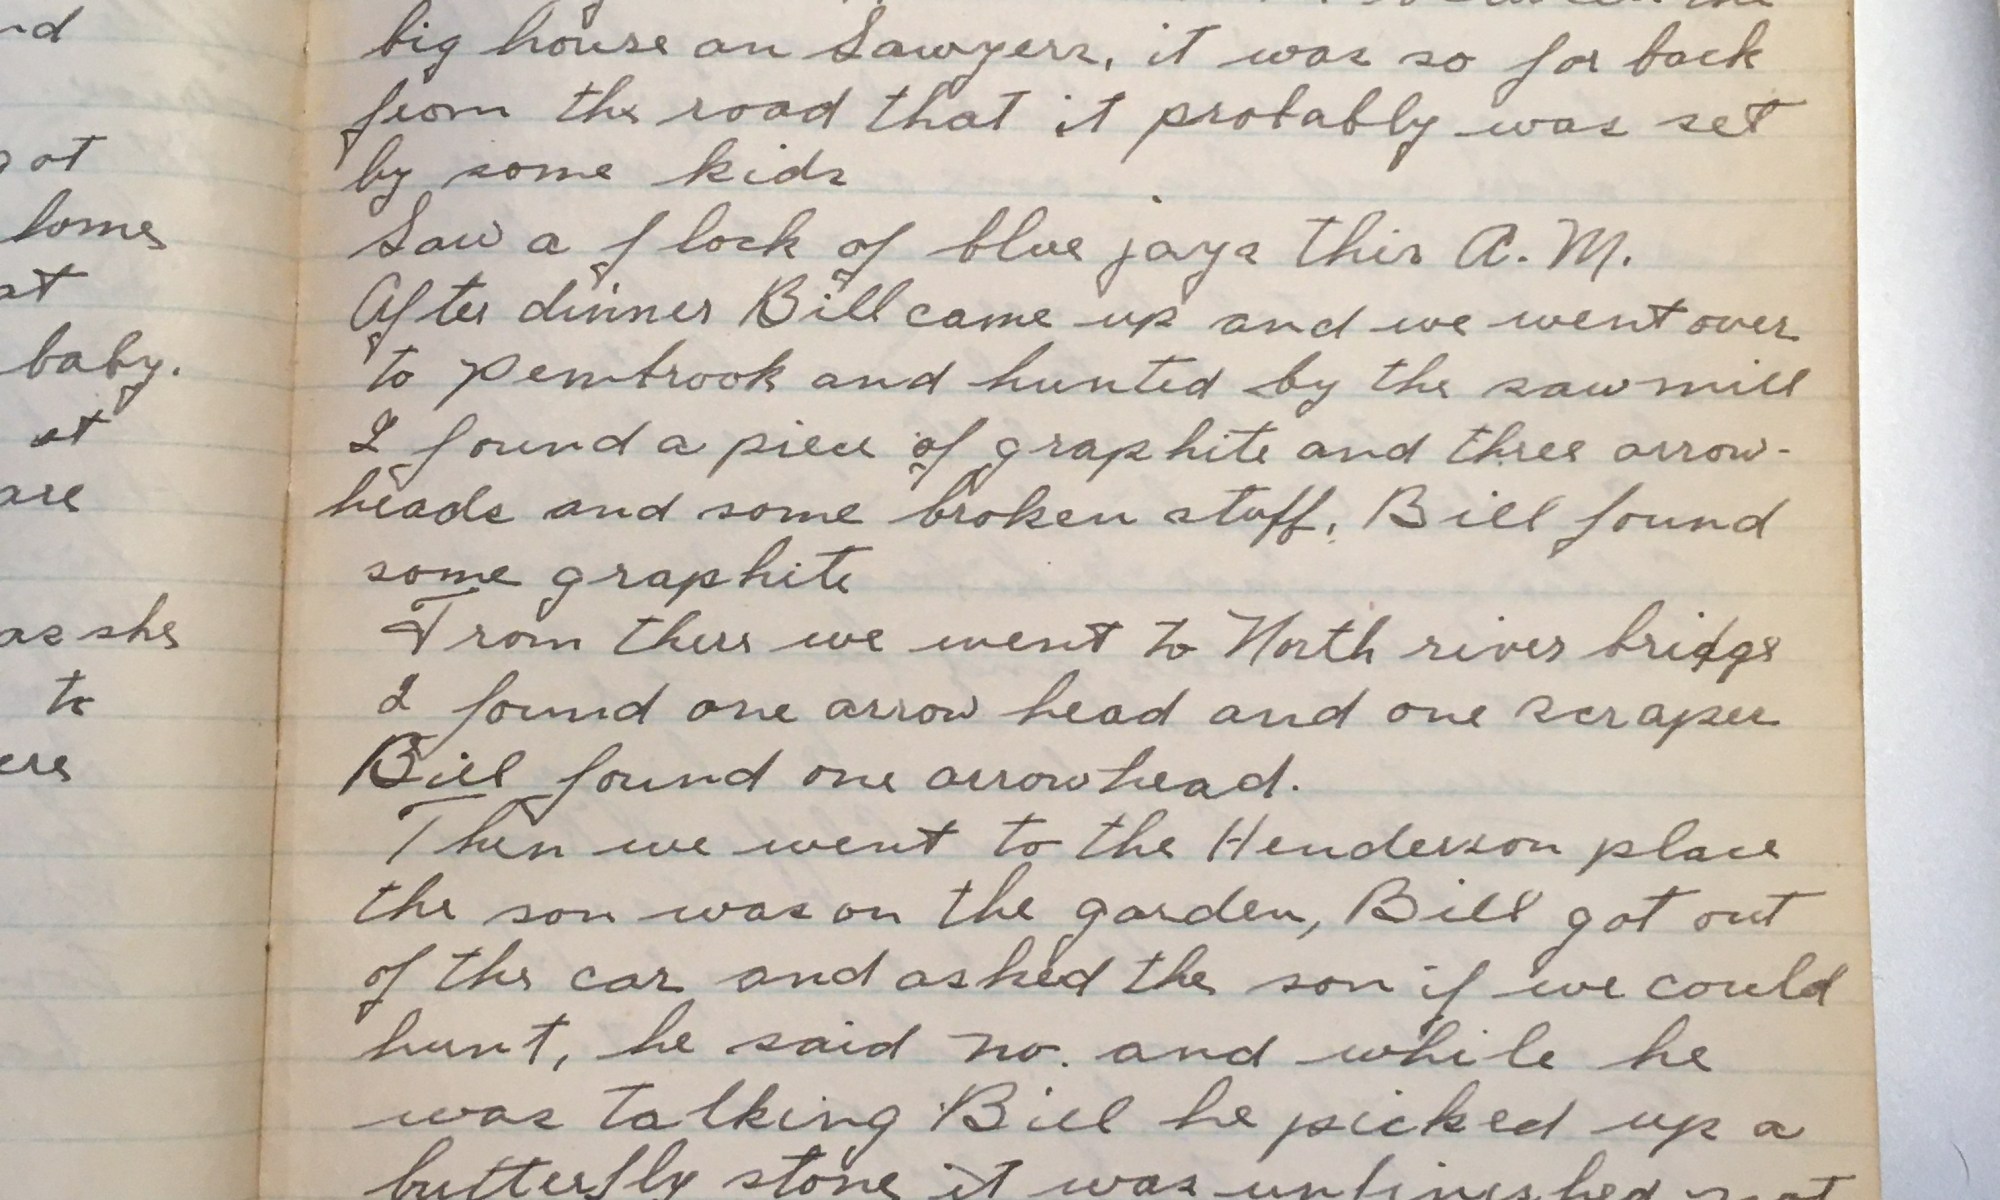 nd
got
home
at
baby.
at
are
as she
to
ere
big house on Sawyers, it was so far back
from the road that it probably was set
by some kids
Saw a flock of blue jays this A.M.
After dinner Bill came up and we went over
to Pembrook and hunted by the sawmill
I found a piece of graphite and three arrow-
heads and some broken stuff, Bill found
some graphite
From there we went to North river bridge
I found one arrow head and one scraper
Bill found one arrowhead.
Then we went to the Henderson place
the son was on the garden, Bill got out
of the car and asked the son if we could
hunt, he said no. and while he
was talking Bill he picked up a
butterfly stone it was unfinished not